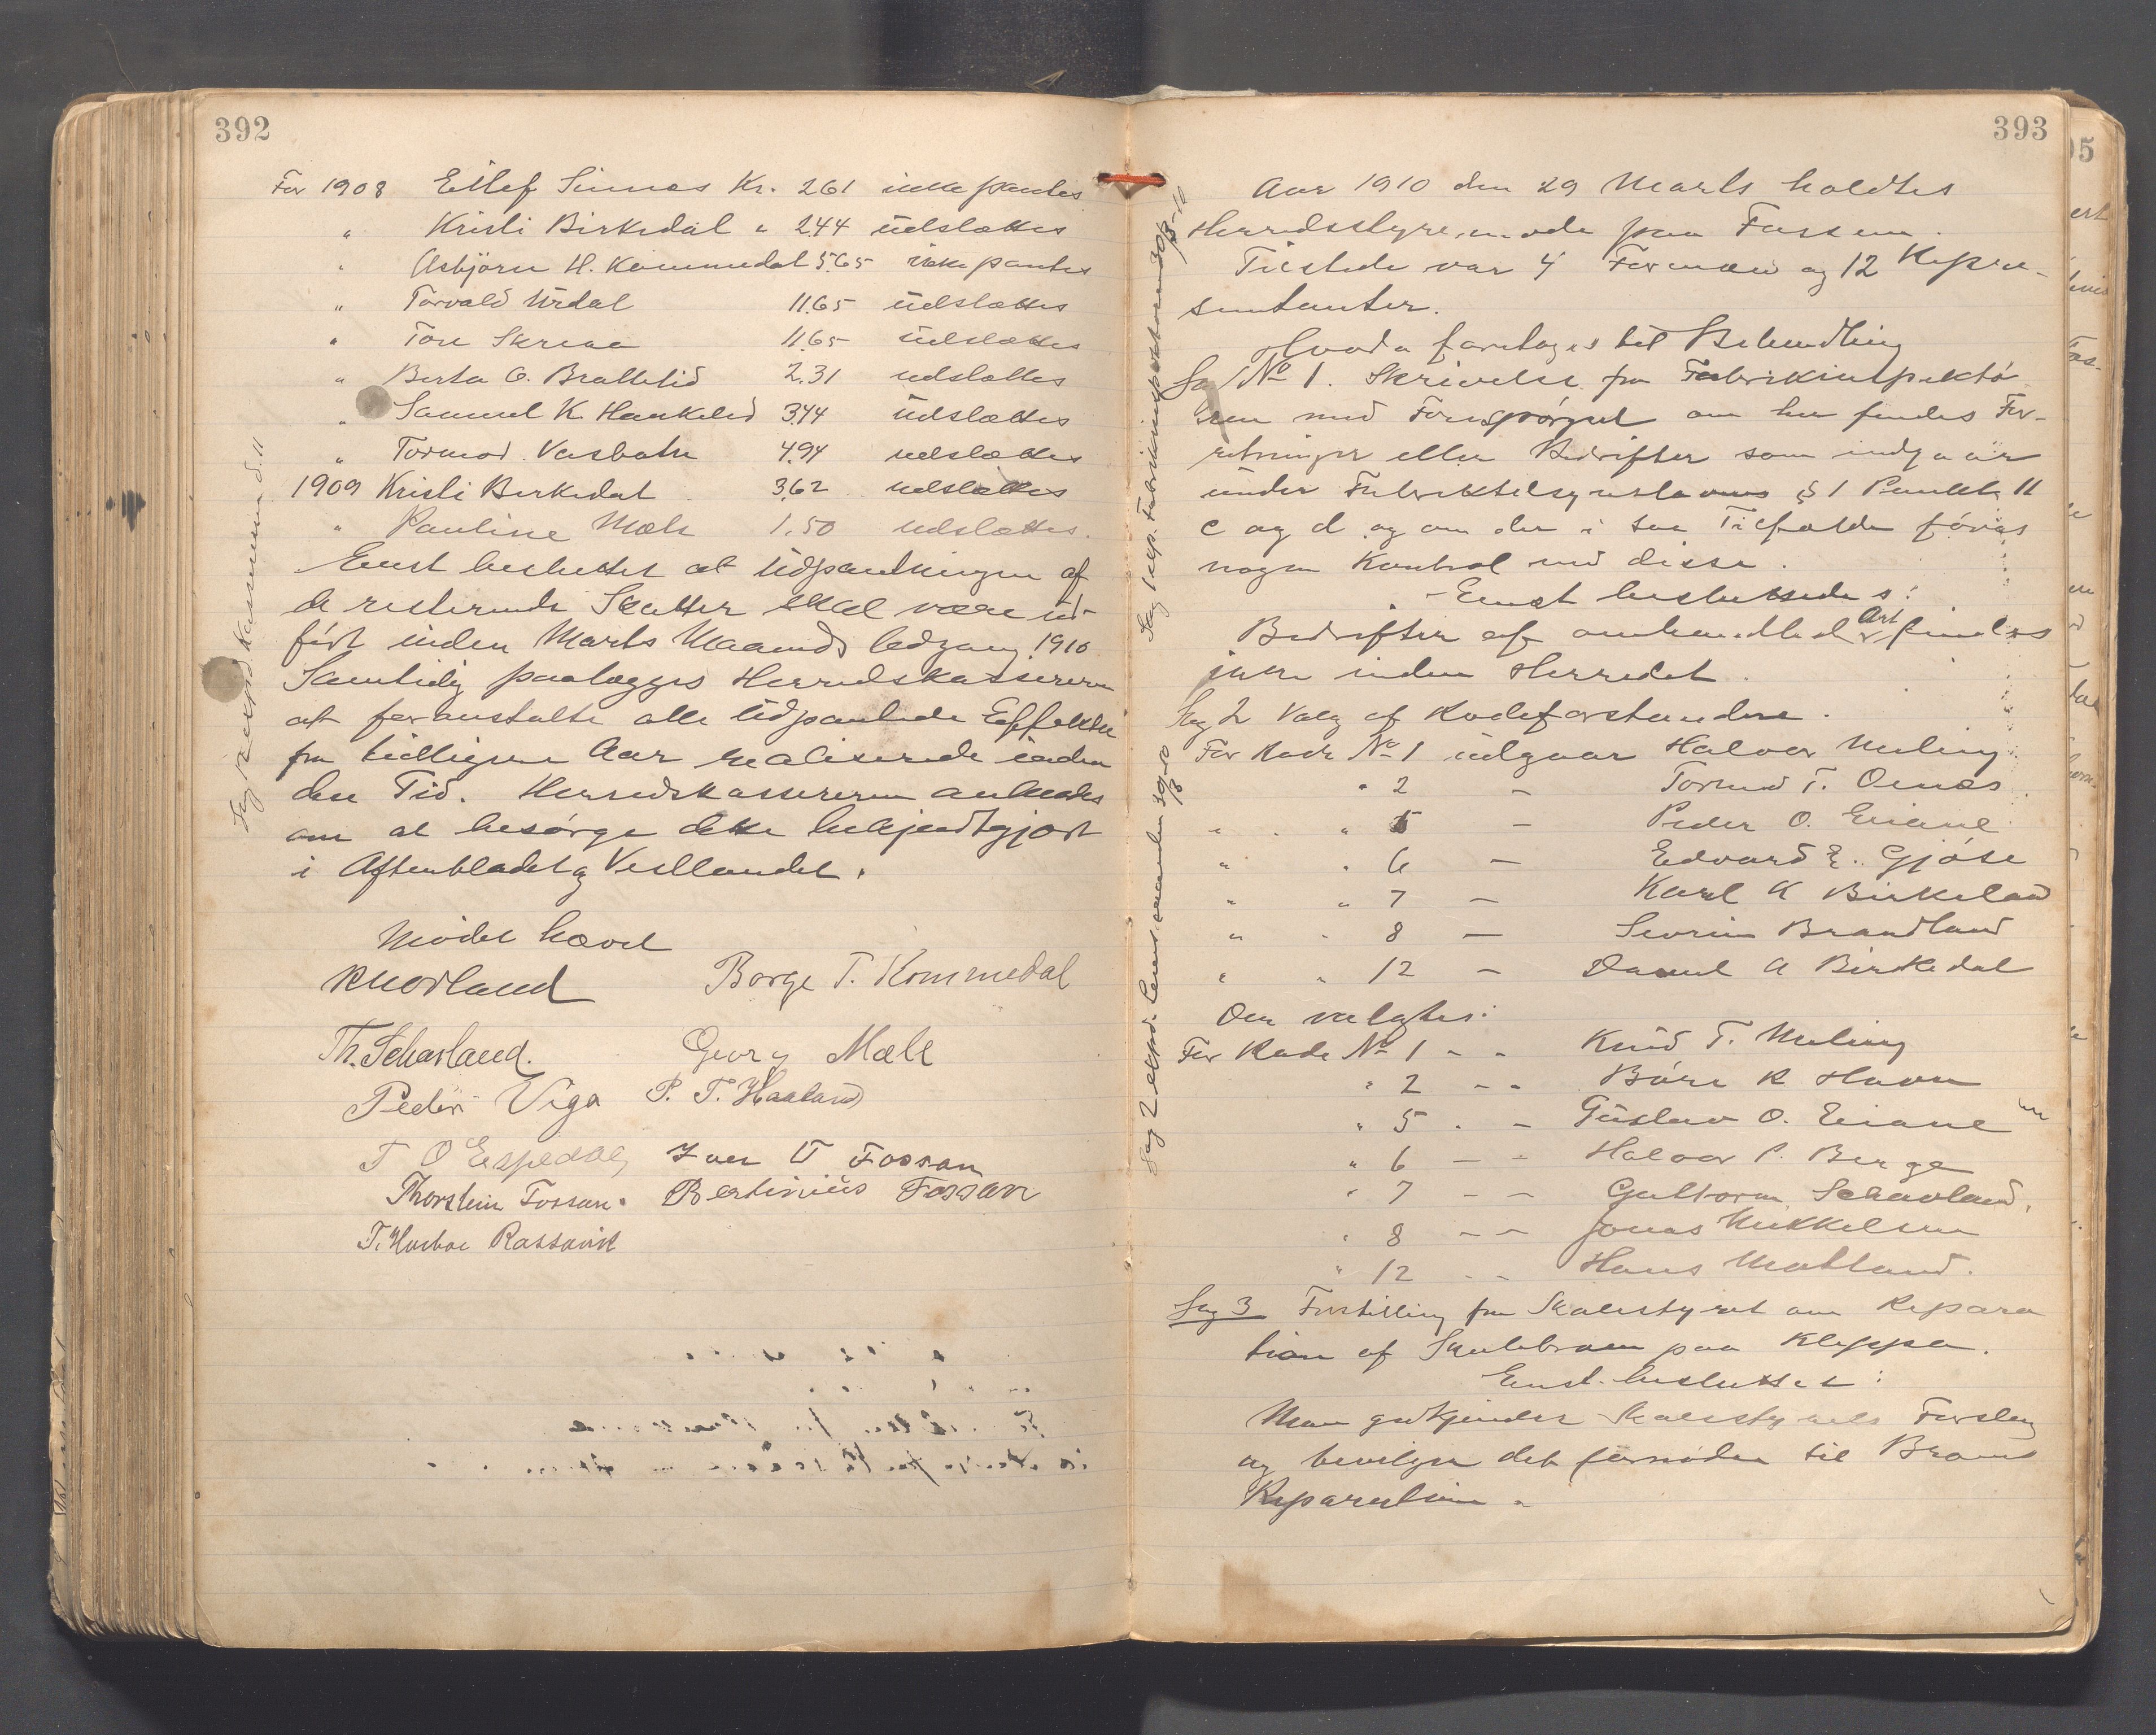 392
For 1908 Eilef Sinnes Kr. 261 ikke pantes
" Kristi Birkedal " 244 udslettes
" Asbjörn H. Kommedal 5.65 ikke pantes
" Torvald Urdal 11.65 udslettes
" Tore Skreaa 11.65 udslettes
" Berta O. Brattelid 2.31 udslettes
" Samuel K. Haukelid 3.44 udslettes
" Tormod Vasbotn 4.94 udslettes
1909 Kristi Birkedal 3,62 udslettes
" Pauline Mæle 1.50 udslettes.
Enst besluttet at Udpantningen af
de resterende Skatter skal være ud-
ført inden Marts Maaneds Udgang 1910
Samtidig paalægges Herredskassereren
at foranstalte alle udpantede Effekter
fra tidligere Aar realiserede inden
den Tid. Herredskassereren anmodes
om at besørge dette bekjendtgjort
i Aftenbladet og Vestlandet.
Mødet hævet
Børge T. Kommedal
Th. Schavland. Georg Mæle
Peder Viga P. T. Haaland
T O Espedal Iver T Fossan
Thorstein Fossan. Bertinius Fossan
T. Hæboe Rassavik
393
Aar 1910 den 29 Marts holdtes
Herredsstyremøde paa Fossan.
Tilstede var 4 Formænd og 12 Repræ-
sentanter.
Hvorda foretoges til Behandling
Sag No 1. Skrivelse fra Fabrikinspektø
ren med Forespørgsel om her findes For-
retninger eller Bedrifter som indgaar
under Fabriktilsynsloven § 1 Punkt 11
c og d og om der i saa Tilfælde føres
nogen Kontrol med disse.
Enst besluttedes:
Bedrifter af omhandlede Art findes
ikke inden Herredet.
Sag 2 Valg af Rodeforstandere.
For Rode No 1 udgaar Halvor Meling
" 2 — Tormod T. Oenæs
" " " 5 — Peder O. Eiane
" " 6 — Edvard E. Gjøse
" " 7 — Karl K Birkeland
" " 8 — Sevrin Brandland
" " 12 — Daniel A Birkedal
Om valgtes:
For Rode No 1 - - Knud T. Meling
" 2 - - Børe K Haven
" 5 - - Gustav O. Eiane
" 6 - - Halvor P. Berge
" 7 - - Guttorm Schavland.
" 8 - - Jonas Mikkelsen
" 12 - - Hans Mæland.
Sag 3 Forstilling fra Skolestyret om Repara
tion af Skolebroen paa Kleppa.
Enst. besluttet:
Man godkjender Skolestyrets Forslag
og bevilger det fornødne til Broens
Reparation.